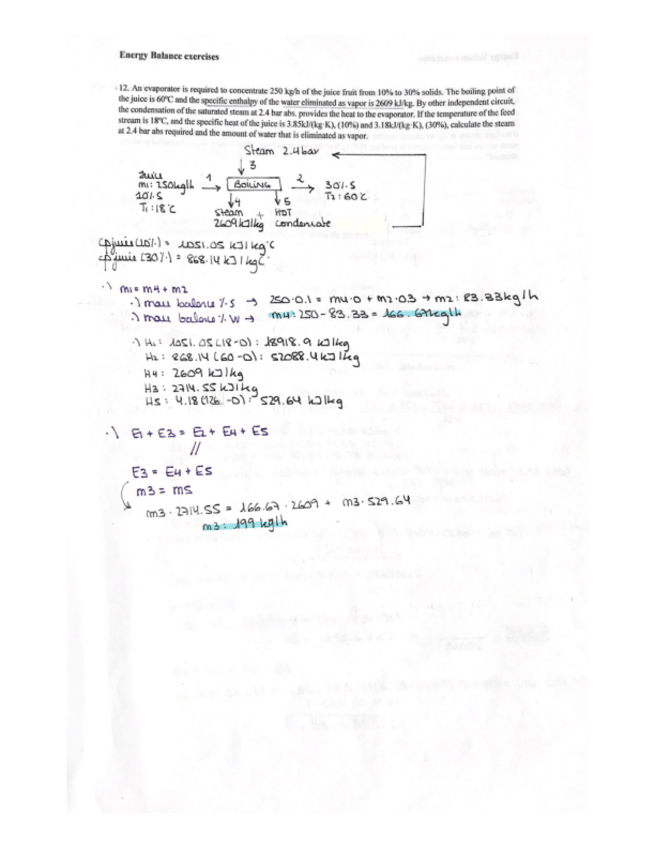 Energy Balance exercises
12. An evaporator is required to concentrate 250 kg/h of the juice fruit from 10% to 30% solids. The boiling point of
the juice is 60ºC and the specific enthalpy of the water eliminated as vapor is 2609 kJ/kg. By other independent circuit,
the condensation of the saturated steam at 2.4 bar abs. provides the heat to the evaporator. If the temperature of the feed
stream is 18ºC, and the specific heat of the juice is 3.85kJ/(kg·K), (10%) and 3.18kJ/(kg·K), (30%), calculate the steam
at 2.4 bar abs required and the amount of water that is eliminated as vapor.
Steam 2.4bar
3
Juice
m1: 250kg/h
10%S
T1: 18ºC
1
BOILING
2
30%S
T2: 60ºC
4
5
Steam + HOT
2609kJ/kg condensate
cpjuis (10%) = 1051.05 kJ/kgºC
cpjuis (30%) = 868.14 kJ/kgC
·) m1 = m4 + m2
·) mass balance % S → 250·0.1 = m4·0 + m2·03 → m2: 83.33kg/h
·) mass balance % W → m4: 250 - 83.33 = 166.67kg/h
·) H1: 1051.05(18-0): 18918.9 kJ/kg
H2: 868.14 (60-0): 52088.4kJ/kg
H4: 2609 kJ/kg
H3: 2714.55 kJ/kg
H5: 4.18(126 -0): 529.64 kJ/kg
·) E1 + E3 = E2 + E4 + E5
//
E3 = E4 + E5
m3 = m5
m3 · 2714.55 = 166.67 · 2609 + m3·529.64
m3: 199 kg/h